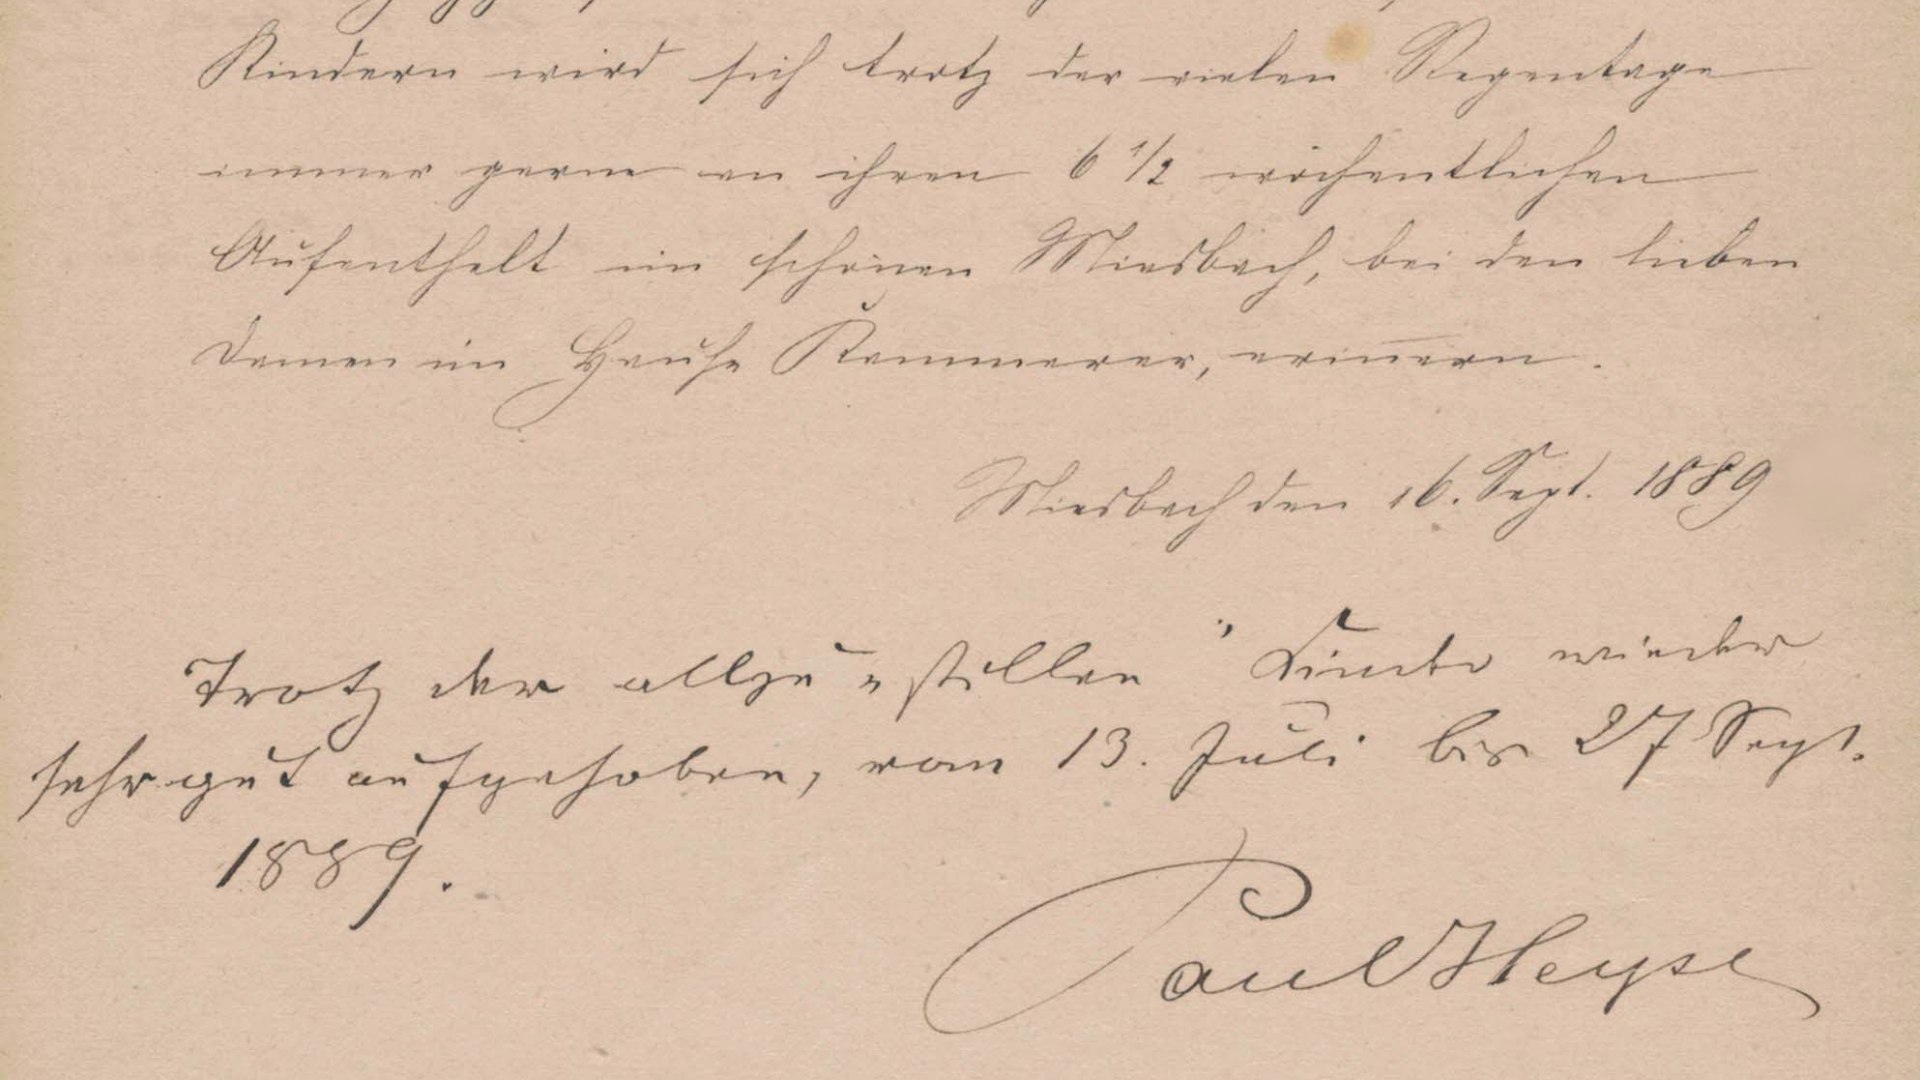 Kindern wird sich trotz der vielen Regentage
immer gerne an ihren 6 1/2 wöchentlichen
Aufenthalt im schönen Miesbach, bei den lieben
Damen im Hause Kammerer, erinnern.
Miesbach den 16. Sept. 1889
Trotz der allzu "stillen" wieder
sehr gut aufgehoben, vom 13. Juli bis 27 Sept.
1889.
Paul Heyse